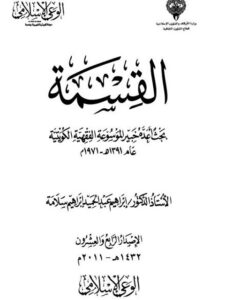 الوعي الإسلامي
وزارة الأوقاف والشئون الإسلامية
القسمة
بحث أعده خبير للموسوعة الفقهية الكويتية
عام ١٣٩١هـ - ١٩٧١م
الأستاذ الدكتور/ إبراهيم عبد الحميد إبراهيم سلامة
الإصدار الرابع والعشرون
١٤٣٢هـ - ٢٠١١م
الوعي الإسلامي